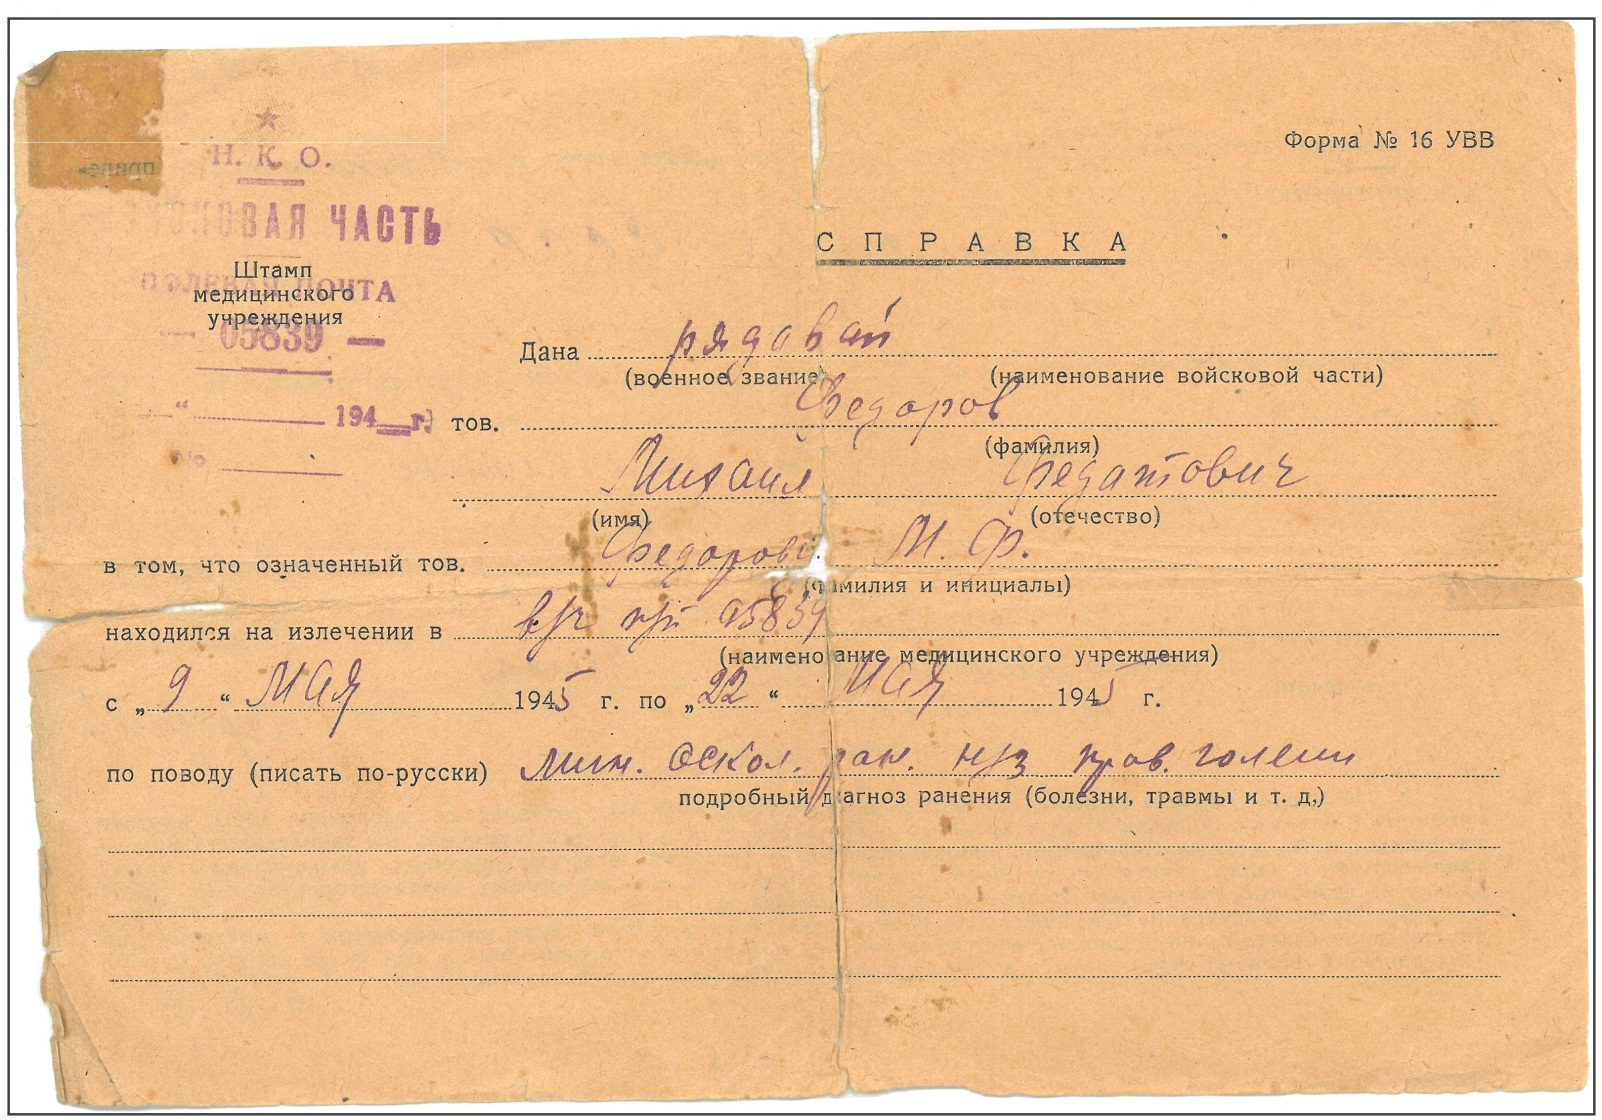 Н. К. О.
Форма № 16 УВВ
ЧАСТЬ
СПРАВКА
Штамп
ПОЛЕВАЯ ПОЧТА
медицинского
учреждения
— 05839 —
Дана рядовай
(военное звание) (наименование войсковой части)
194 г. тов. Федоров
№
(фамилия)
Михаил Федатович
(имя) (отечество)
в том, что означенный тов. Федоров М. Ф.
(фамилия и инициалы)
находился на излечении в в/ч п/п 05839
(наименование медицинского учреждения)
с „ 9 “ МАЯ 1945 г. по „ 22 “ МАЯ 1945 г.
по поводу (писать по-русски) мин. оскол. ран. н/з прав. голени
подробный диагноз ранения (болезни, травмы и т. д.)